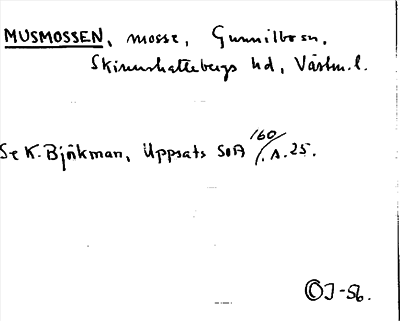 MUSMOSSEN, mosse, Gunnilbo sn,
Skinnskattebergs hd, Västm.l.
Se K. Björkman, Uppsats SOA 160/.A.25.
ⒸJ-56.